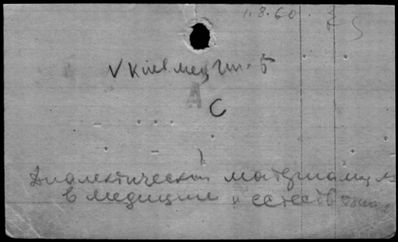 1.8.60.
V Киев мед
А
С
Диалектический материализм
в медицине и естеств